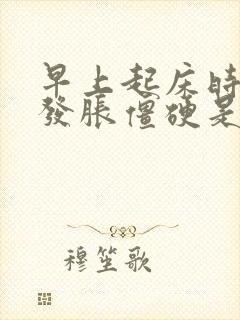 早上起床時
發脹僵硬是
穆笙歌